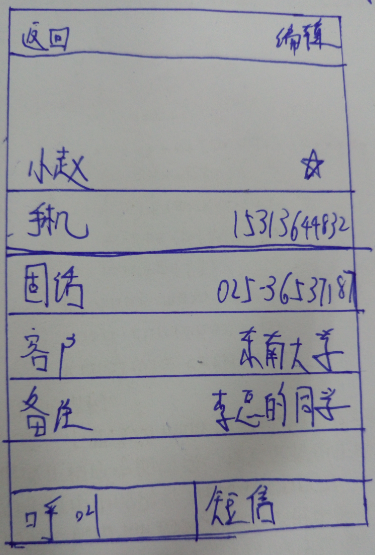 返回 编辑
小赵 ☆
手机 15313644832
固话 025-36537187
客户 东南大学
备注 李总的同学
呼叫 短信